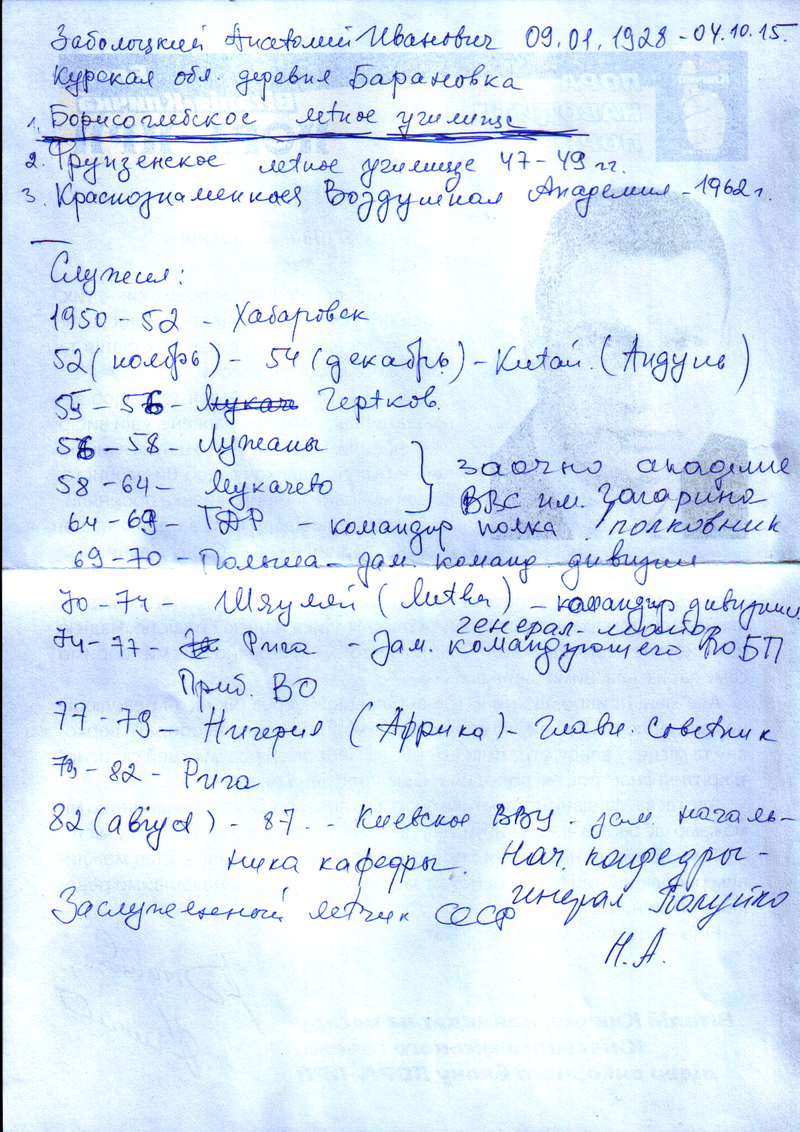 Заболоцкий Анатолий Иванович 09.01.1928 - 04.10.15.
Курская обл. деревня Барановка
1. Борисоглебское летное училище
2. Фрунзенское летное училище 47-49 гг.
3. Краснознаменная Воздушная Академия - 1962 г.
Служил:
1950 - 52 - Хабаровск
52 (ноябрь) - 54 (декабрь) - Китай. (Андунь)
55 - 56 - Мукач Чертков.
56 - 58 - Лужаны
58 - 64 - Мукачево } заочно академие ВВС им. Гагарина
64 - 69 - ГДР - командир полка полковник
69 - 70 - Польша - зам. команд. дивизии
70 - 74 - Шяуляй (Литва) - командир дивизии
генерал-майор
74 - 77 - Рига - Зам. командующего по БП
Приб. ВО
77 - 79 - Нигерия (Африка) - Главн. советник
79 - 82 - Рига
82 (август) - 87. - Киевское ВВУ - зам. началь-
ника кафедры. Нач. кафедры -
Заслуженный летчик СССР генерал Полуйко
Н.А.